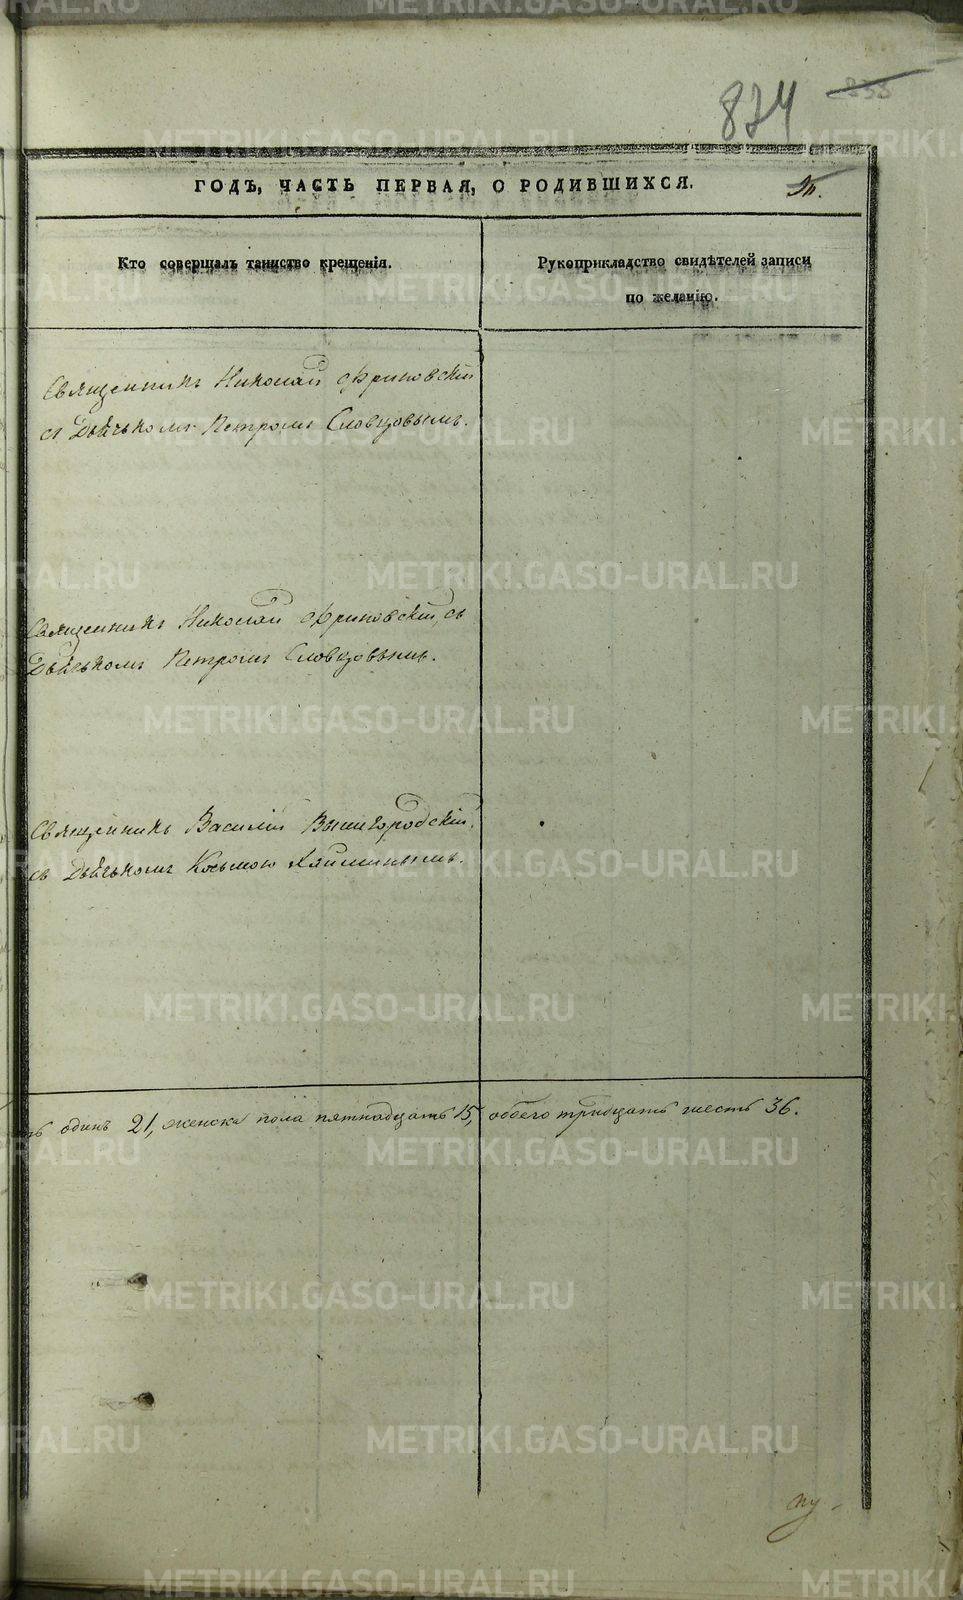 834 838
ГОДЪ, ЧАСТЬ ПЕРВАЯ, О РОДИВШИХСЯ.
Кто совершалъ таинство крещенія.
Рукоприкладство свидѣтелей записи
по желанію.
Священникъ Николай Фриповскій
съ Дьячькомъ Петромъ Словцовымъ.
Священникъ Николай Фриповскій, съ
Дьячькомъ Петромъ Словцовымъ.
Священникъ Василій Вышгородскій,
съ Дьячькомъ Козьмою Хлйминымъ.
ть одинъ 21, женска пола пятнадцать 15, обоего тридцать шесть 36.
METRIKI.GASO-URAL.RU